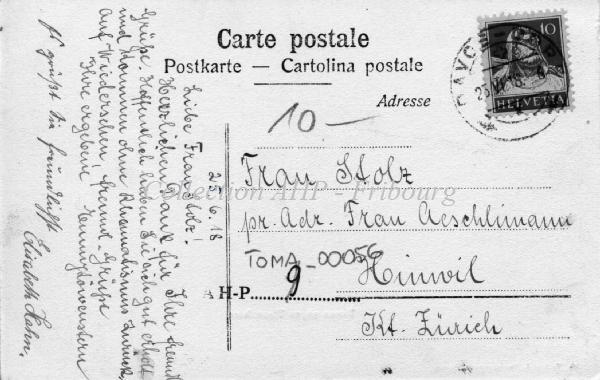 Carte postale
Postkarte — Cartolina postale
Adresse
10
HELVETIA
10 —
Frau Stolz
pr. Adr. Frau Aeschlimann
Hinwil
Kt. Zürich
TOMA_00056
AH-P. 9
Collection AHP - Fribourg
23.6.18
Liebe Frau Stolz!
Herzlichen Dank für Ihre freundl.
Grüße. Hoffentlich haben Sie sich gut erholt
und kommen ohne Rheumatismus zurück.
Auf Wiedersehen, freundl. Grüße
Ihre ergebene
Es grüßt Sie freundlichst
Elisabeth Hahn.